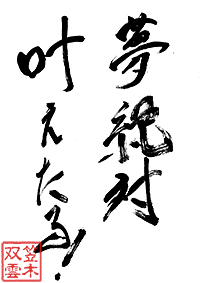 夢絶対
叶えたる!
笠木
双雲